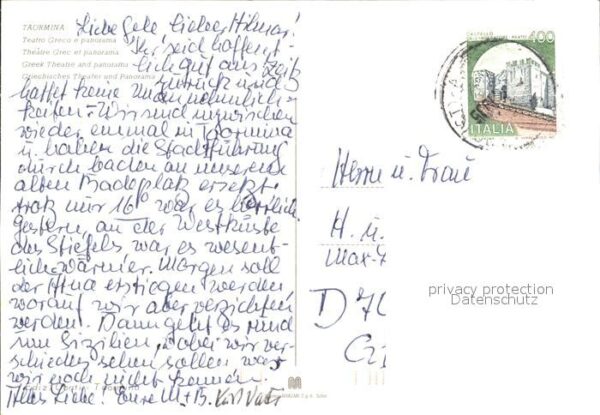 TAORMINA
Teatro Greco e panorama
Théâtre Grec et panorama
Greek Theatre and panorama
Griechisches Theater und Panorama
Liebe Gele, lieber Hilmar!
Ihr seid hoffent-
lich gut aus
zurück und
hattet keine Unannehmlich-
keiten. Wir sind inzwischen
wieder einmal in Taormina
u. haben die Stadtführung
durch baden an unserem
alten Badeplatz ersetzt.
trotz nur 16° war es herrlich.
Gestern, an der Westküste
des Stiefels war es wesent-
lich wärmer. Morgen soll
der Ätna erstiegen werden
worauf wir aber verzichten
werden. Dann geht es rund
um Sizilien, wobei wir ver-
schiedenes sehen sollen was
wir noch nicht kennen.
Alles Liebe! Eure M+B.
400
ITALIA
Herrn u. Frau
H. u.
Max-
D 70
privacy protection
Datenschutz